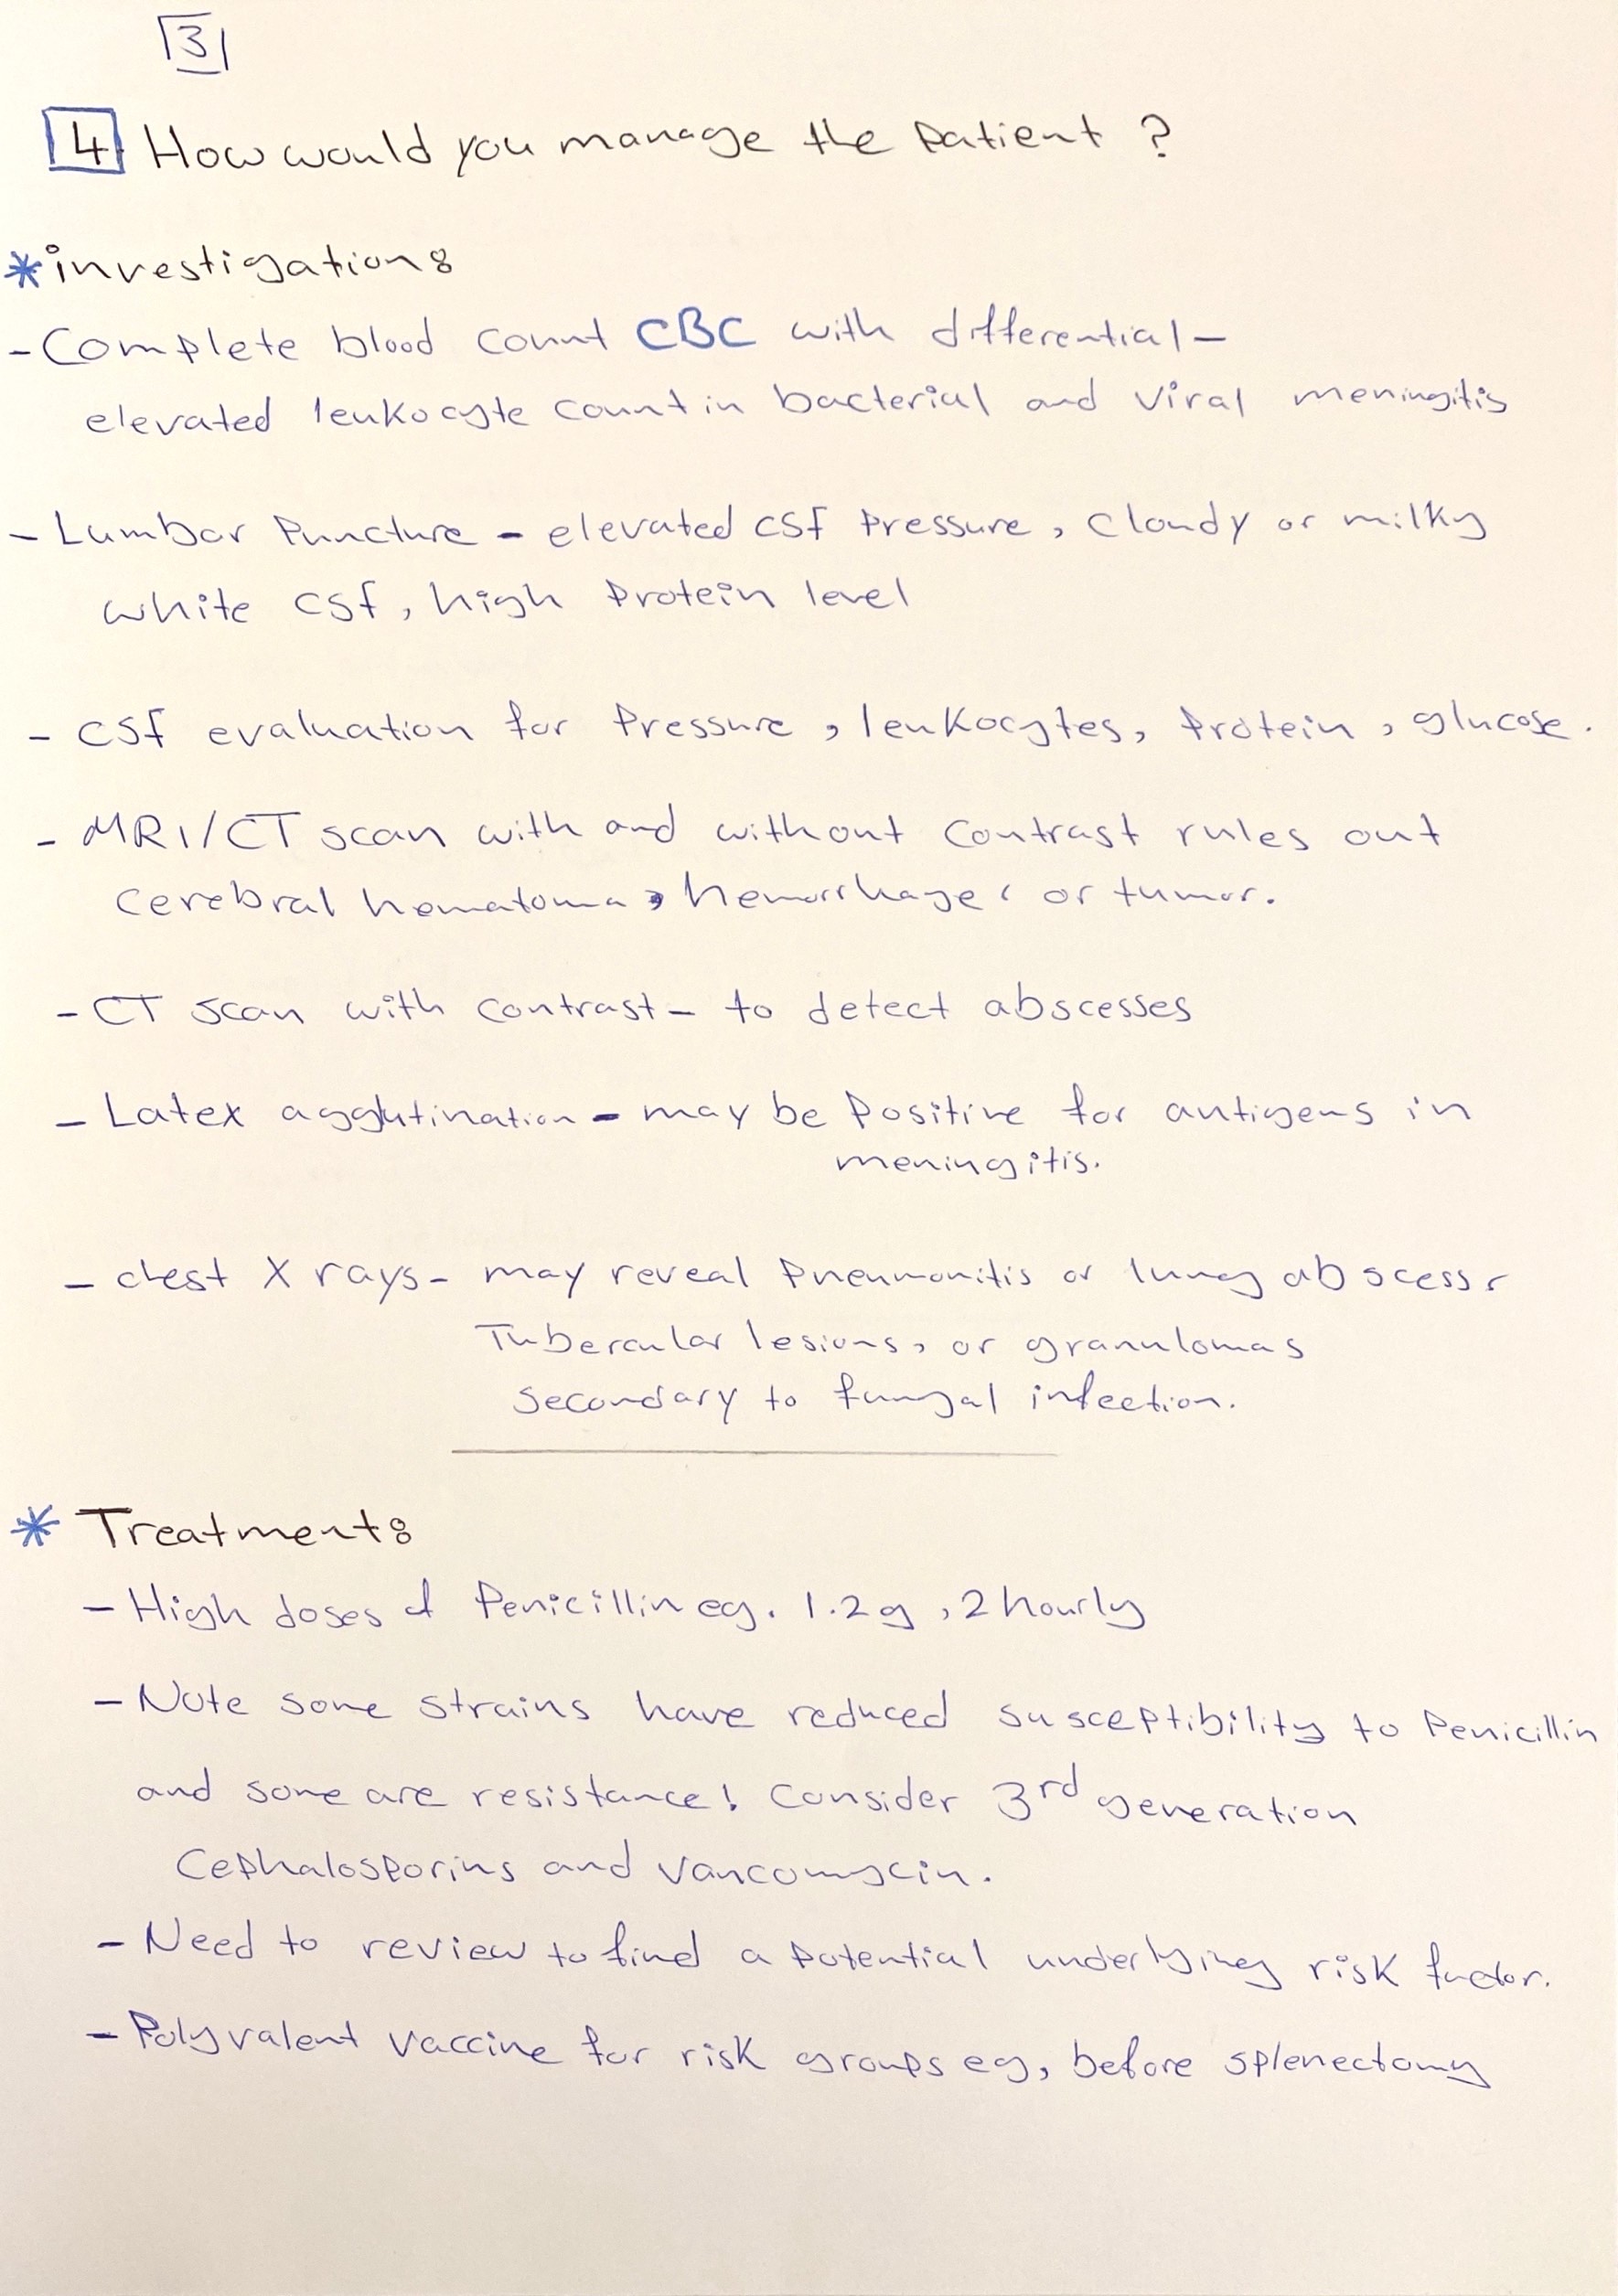 3
4 How would you manage the Patient ?
*investigation:
- Complete blood count CBC with differential -
elevated leukocyte count in bacterial and viral meningitis
- Lumbar Puncture - elevated CSF Pressure, Cloudy or milky
white CSF, high Protein level
- CSF evaluation for Pressure, leukocytes, Protein, glucose.
- MRI/CT scan with and without Contrast rules out
Cerebral hematoma, hemorrhage, or tumor.
- CT scan with contrast - to detect abscesses
- Latex agglutination - may be Positive for antigens in
meningitis.
- chest X rays - may reveal Pneumonitis or lung abscess,
Tubercular lesions, or granulomas
secondary to fungal infection.
* Treatment:
- High doses of Penicillin eg. 1.2g, 2 hourly
- Note some strains have reduced susceptibility to Penicillin
and some are resistance! Consider 3rd generation
Cephalosporins and Vancomycin.
- Need to review to find a Potential underlying risk factor.
- Polyvalent vaccine for risk groups eg, before splenectomy